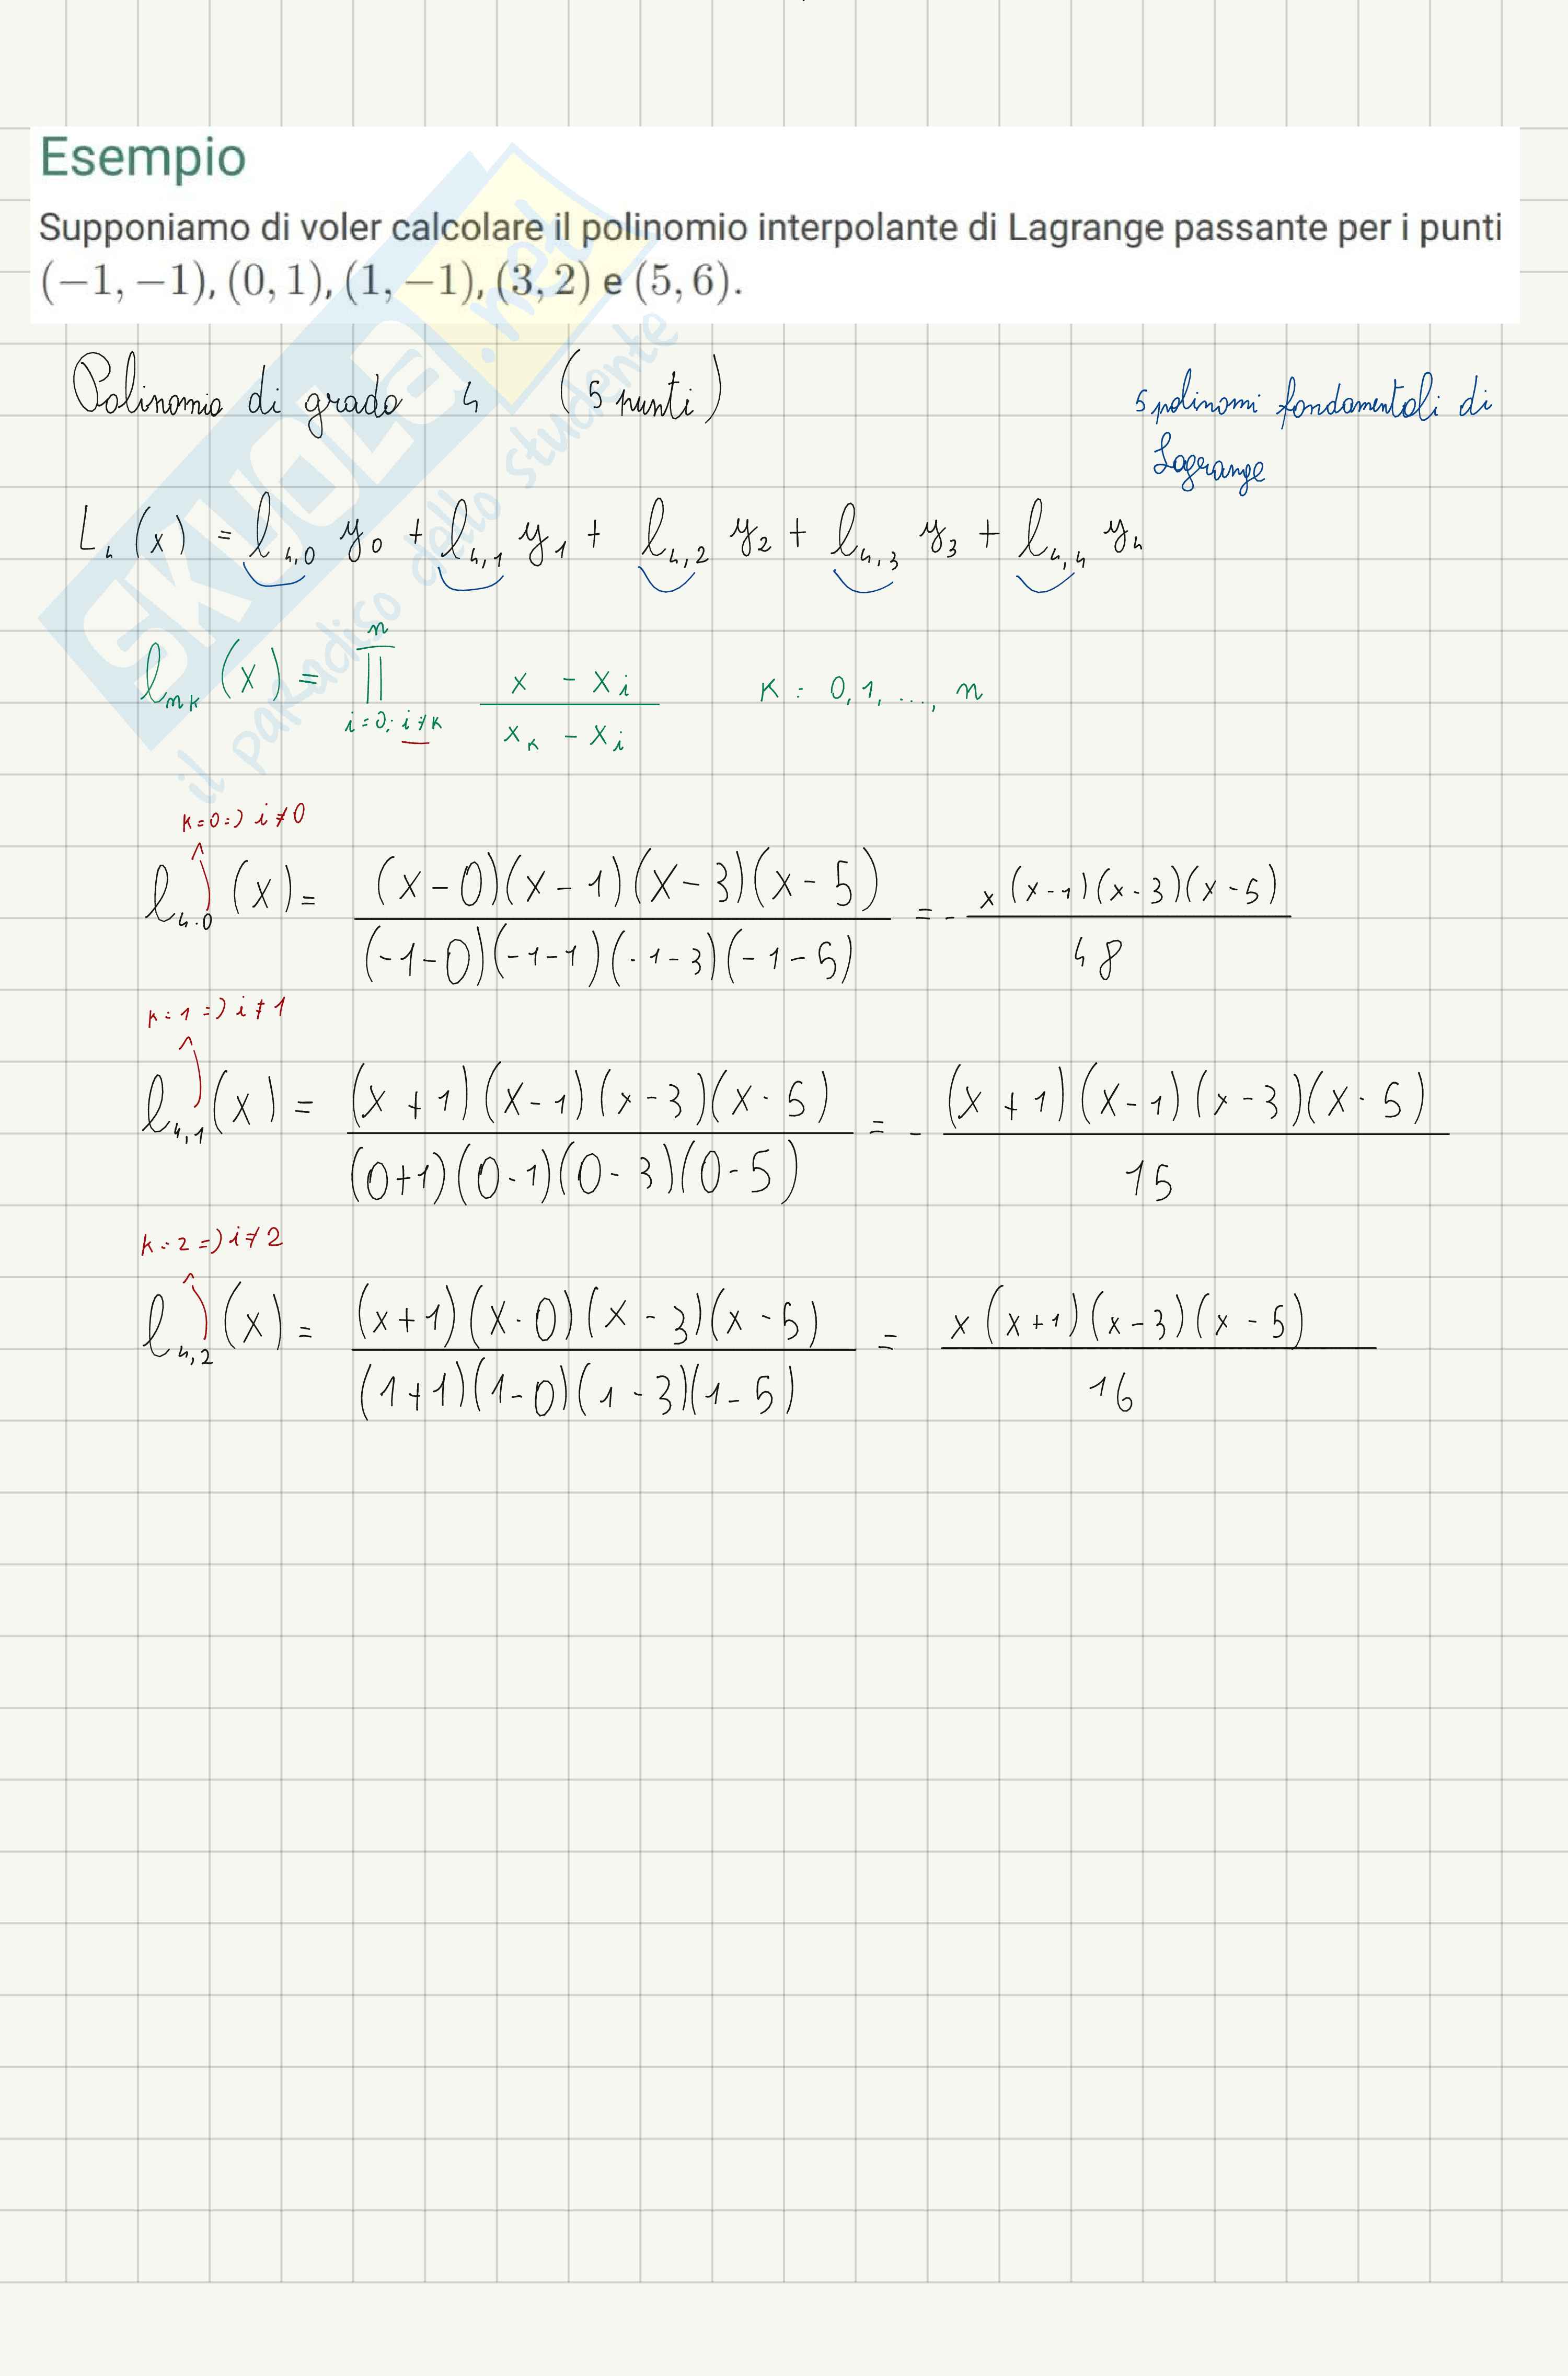 Esempio
Supponiamo di voler calcolare il polinomio interpolante di Lagrange passante per i punti
(−1, −1), (0, 1), (1, −1), (3, 2) e (5, 6).
Polinomio di grado 4 (5 punti)
5 polinomi fondamentali di
Lagrange
L₄(x) = l₄,₀ y₀ + l₄,₁ y₁ + l₄,₂ y₂ + l₄,₃ y₃ + l₄,₄ y₄
n
l_nk (x) = ∏ (x - x_i) / (x_k - x_i) K = 0, 1, ..., n
i=0; i≠k
K=0 => i≠0
l₄.₀ (x) = (x-0)(x-1)(x-3)(x-5) / (-1-0)(-1-1)(-1-3)(-1-5) = - x(x-1)(x-3)(x-5) / 48
K=1 => i≠1
l₄,₁ (x) = (x+1)(x-1)(x-3)(x-5) / (0+1)(0-1)(0-3)(0-5) = - (x+1)(x-1)(x-3)(x-5) / 15
K=2 => i≠2
l₄,₂ (x) = (x+1)(x-0)(x-3)(x-5) / (1+1)(1-0)(1-3)(1-5) = x(x+1)(x-3)(x-5) / 16
SKUOLA.net
il paradiso dello studente